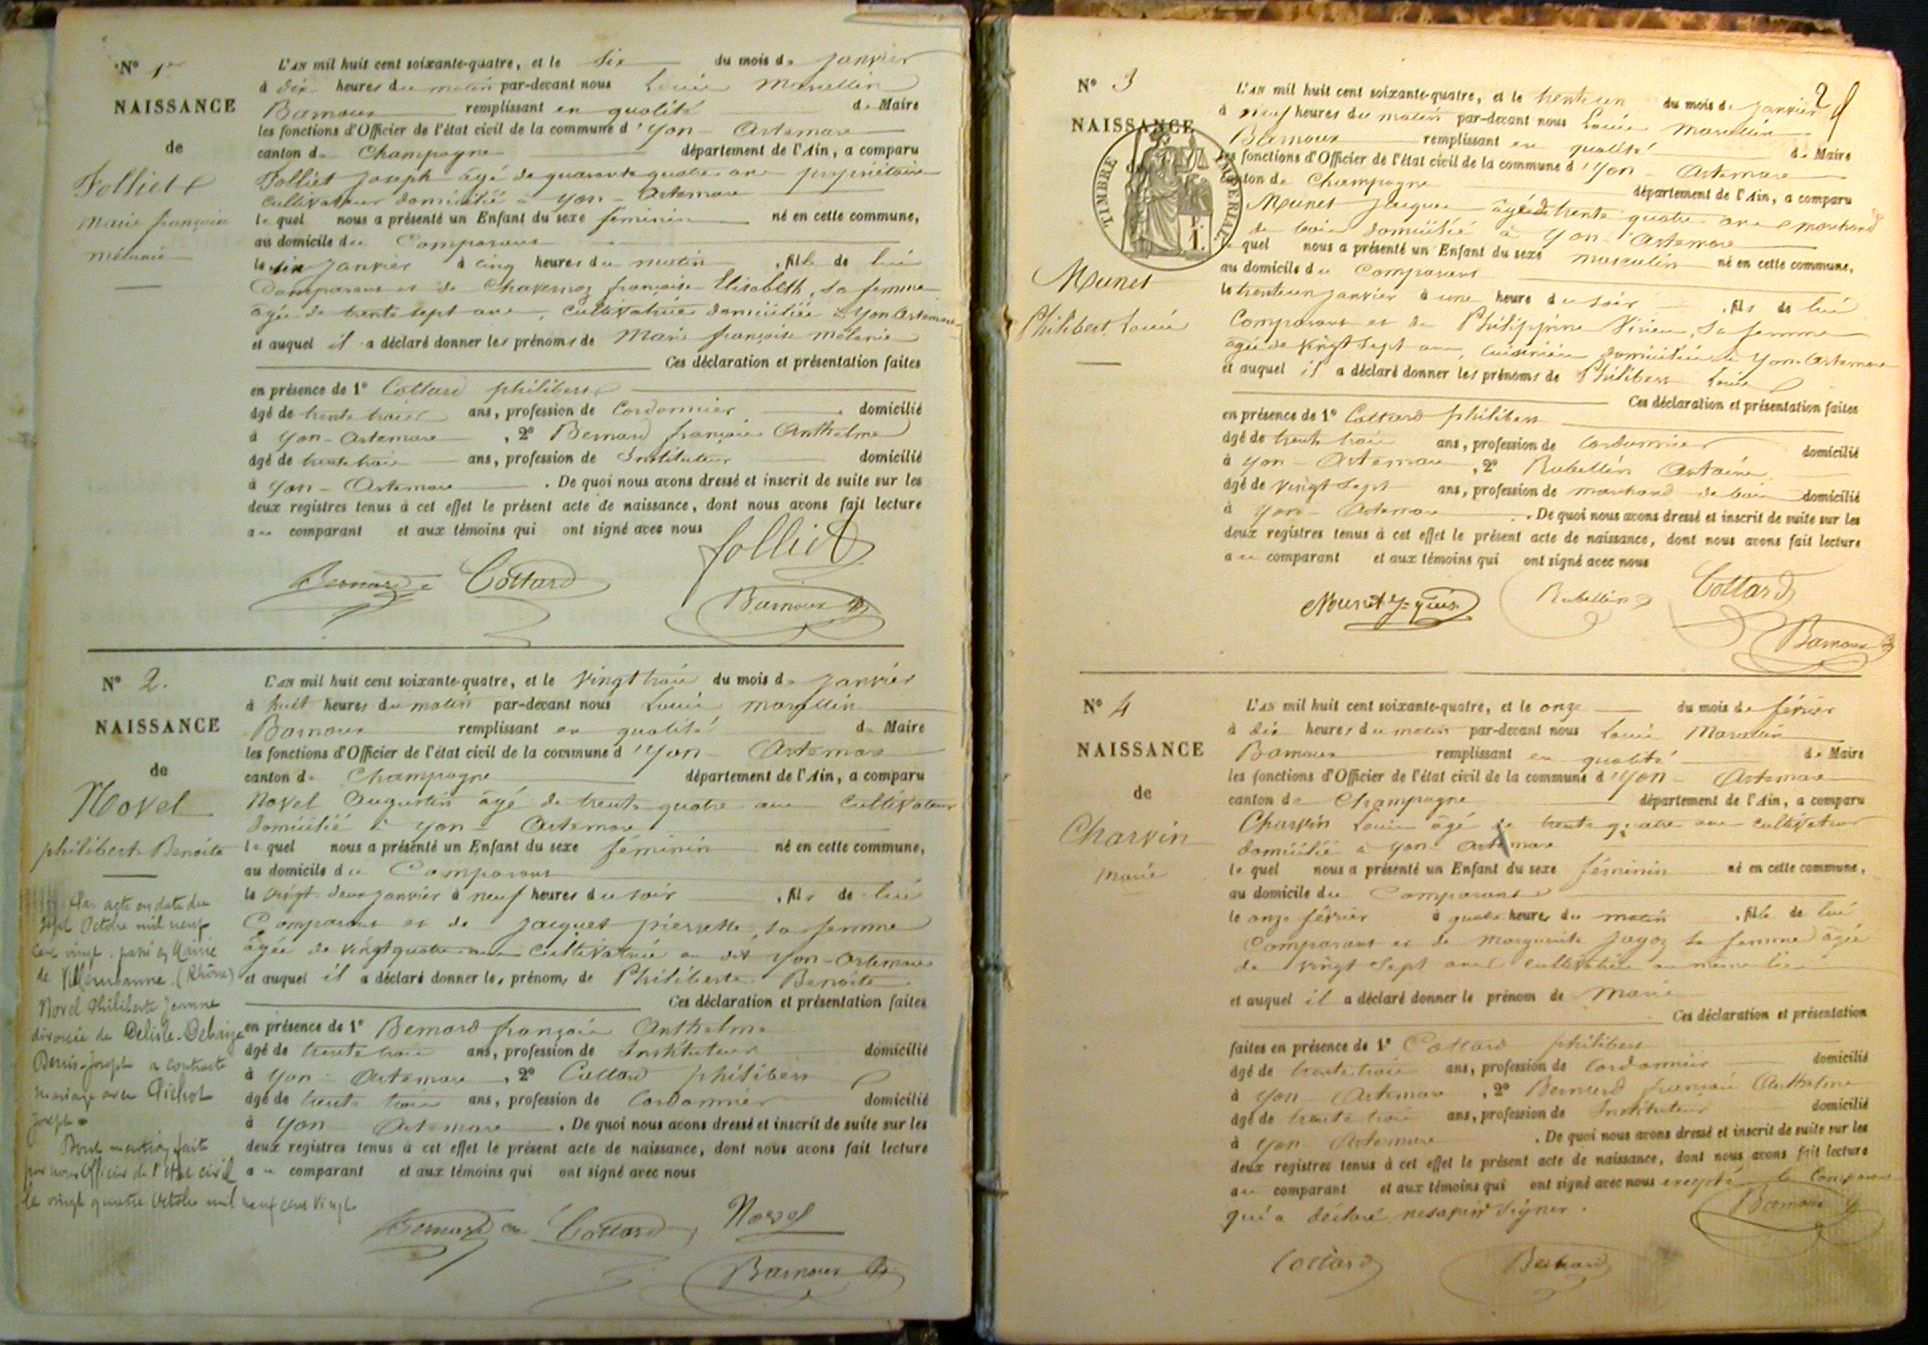 N° 1er
NAISSANCE
de
Folliet
Marie françoise
mélanie
L'AN mil huit cent soixante-quatre, et le six du mois de janvier
à dix heures du matin par-devant nous Louis Marcellin
Barnoux remplissant en qualité de Maire
les fonctions d'Officier de l'état civil de la commune d'yon - Artemare
canton de Champagne département de l'Ain, a comparu
Folliet joseph âgé de quarante quatre ans propriétaire
cultivateur domicilié à yon - Artemare
lequel nous a présenté un Enfant du sexe féminin né en cette commune,
au domicile du Comparant
le six janvier à cinq heures du matin, fille de lui
Comparant et de françoise Elisabeth, sa femme
agée de trente sept ans, cultivatrice domiciliée à Yon Artemare
et auquel il a déclaré donner les prénoms de Marie françoise mélanie
Ces déclaration et présentation faites
en présence de 1° Cottard philibert
âgé de trente trois ans, profession de Cordonnier domicilié
à yon - Artemare, 2° Bernard françois Anthelme
âgé de trente trois ans, profession de Instituteur domicilié
à yon - Artemare. De quoi nous avons dressé et inscrit de suite sur les
deux registres tenus à cet effet le présent acte de naissance, dont nous avons fait lecture
au comparant et aux témoins qui ont signé avec nous
folliet
Bernard Cottard
Barnoux
N° 2.
NAISSANCE
de
Novel
philiberte Benoite
Par acte en date du
sept Octobre mil neuf
cent vingt. passé en Mairie
de Villeurbanne. (Rhône)
Novel Philiberte Jeanne
divorcée de Delisle-
Denis-Joseph a contracté
mariage avec Pichot
Joseph
Dont mention faite
par nous Officier de l'état civil
le vingt quatre Octobre mil neuf cent vingt
L'AN mil huit cent soixante-quatre, et le vingt trois du mois de janvier
à huit heures du matin par-devant nous Louis marcellin
Barnoux remplissant en qualité de Maire
les fonctions d'Officier de l'état civil de la commune d'yon - Artemare
canton de Champagne département de l'Ain, a comparu
Novel Augustin âgé de trente quatre ans cultivateur
domicilié à yon - Artemare
lequel nous a présenté un Enfant du sexe féminin né en cette commune,
au domicile du Comparant
le vingt deux janvier à neuf heures du soir, fils de lui
Comparant et de jacquet pierrette, sa femme
âgée de vingt quatre ans cultivatrice au dit yon - Artemare
et auquel il a déclaré donner les prénoms de Philiberte Benoite
Ces déclaration et présentation faites
en présence de 1° Bernard françois Anthelme
âgé de trente trois ans, profession de Instituteur domicilié
à yon - Artemare, 2° Cottard philibert
âgé de trente trois ans, profession de Cordonnier domicilié
à yon Artemare. De quoi nous avons dressé et inscrit de suite sur les
deux registres tenus à cet effet le présent acte de naissance, dont nous avons fait lecture
au comparant et aux témoins qui ont signé avec nous
Bernard Cottard Novel
Barnoux
2
N° 3
NAISSANCE
de
TIMBRE IMPÉRIAL
1 F.
Munet
Philibert Louis
L'AN mil huit cent soixante-quatre, et le trente un du mois de janvier
à neuf heures du matin par-devant nous Louis Marcellin
Barnoux remplissant en qualité de Maire
les fonctions d'Officier de l'état civil de la commune d'yon - Artemare
canton de Champagne département de l'Ain, a comparu
Munet jacques âgé de trente quatre ans marchand
de bois domicilié à yon Artemare
lequel nous a présenté un Enfant du sexe masculin né en cette commune,
au domicile du Comparant
le trente un janvier à une heure du soir, fils de lui
Comparant et de Philippine, sa femme
agée de vingt sept ans, domiciliée à yon - Artemare
et auquel il a déclaré donner les prénoms de Philibert Louis
Ces déclaration et présentation faites
en présence de 1° Cottard philibert
âgé de trente trois ans, profession de Cordonnier domicilié
à yon - Artemare, 2° Rubellin Antoine
âgé de vingt sept ans, profession de marchand de bois domicilié
à yon - Artemare. De quoi nous avons dressé et inscrit de suite sur les
deux registres tenus à cet effet le présent acte de naissance, dont nous avons fait lecture
au comparant et aux témoins qui ont signé avec nous
Munet Rubellin Cottard
Barnoux
N° 4
NAISSANCE
de
Charvin
Marie
L'AN mil huit cent soixante-quatre, et le onze du mois de février
à dix heures du matin par-devant nous Louis Marcellin
Barnoux remplissant en qualité de Maire
les fonctions d'Officier de l'état civil de la commune d'yon - Artemare
canton de Champagne département de l'Ain, a comparu
Charvin Louis âgé de trente quatre ans cultivateur
domicilié à yon Artemare
lequel nous a présenté un Enfant du sexe féminin né en cette commune,
au domicile du Comparant
le onze février à quatre heures du matin, fille de lui
Comparant et de Marguerite Jayoz sa femme âgée
de vingt sept ans cultivatrice au même lieu
et auquel il a déclaré donner le prénom de Marie
Ces déclaration et présentation
faites en présence de 1° Cottard philibert
âgé de trente trois ans, profession de Cordonnier domicilié
à yon Artemare, 2° Bernard françois Anthelme
âgé de trente trois ans, profession de Instituteur domicilié
à yon Artemare. De quoi nous avons dressé et inscrit de suite sur les
deux registres tenus à cet effet le présent acte de naissance, dont nous avons fait lecture
au comparant et aux témoins qui ont signé avec nous excepté le Comparant
qui a déclaré ne savoir signer.
Barnoux
Cottard Bernard